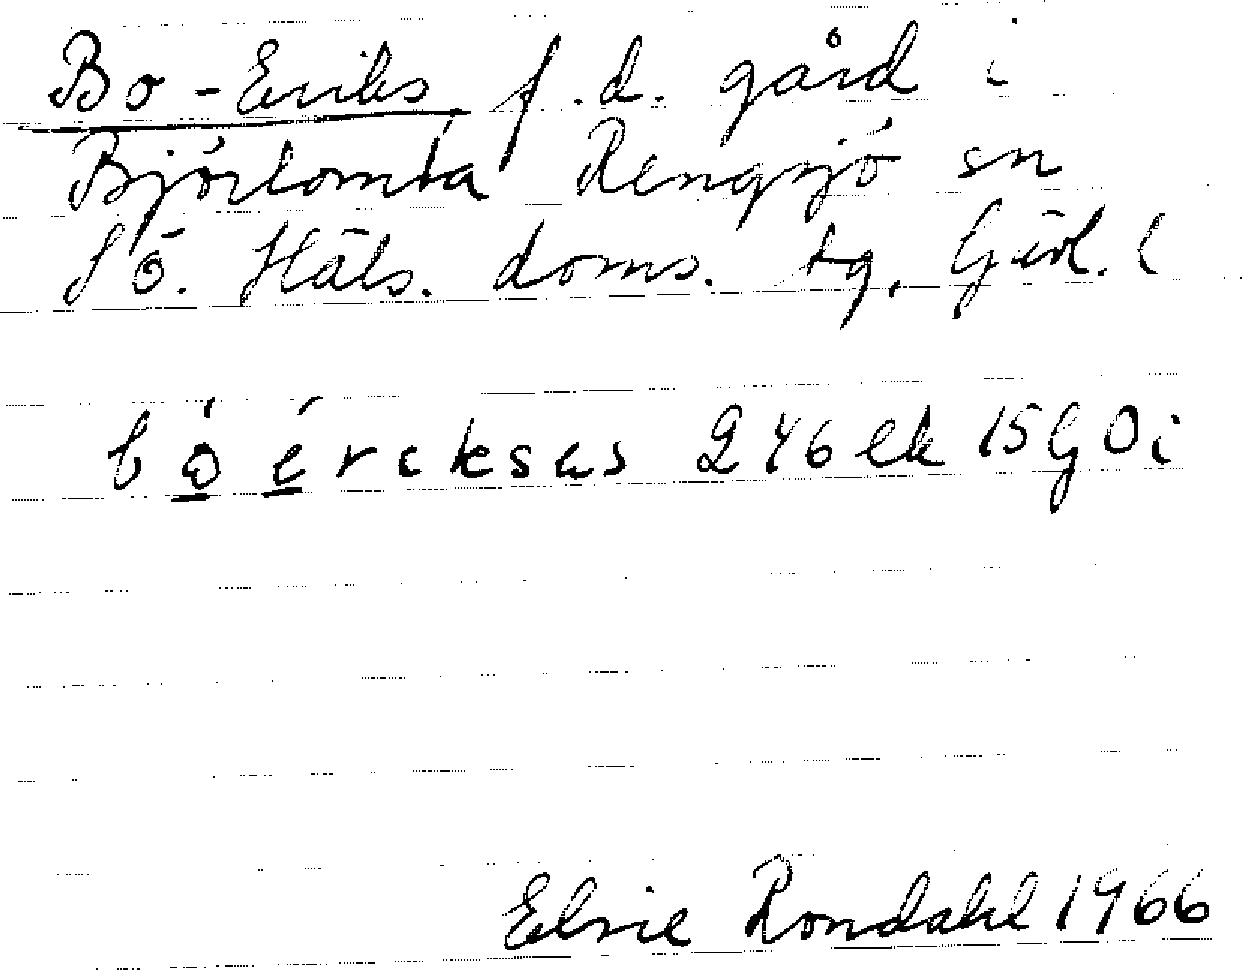 Bo-Eriks f.d. gård i
Björtomta Rengsjö sn
Sö. Häls. doms. tg, Gävl. l
bo̲ e̲rɩksas 246 ek 15 G 0 i
Elsie Rondahl 1966